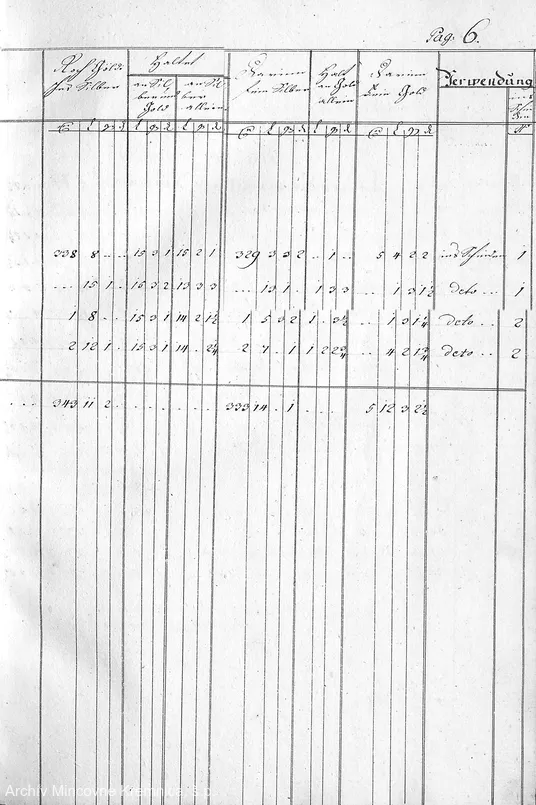 Pag: 6.
Haltet
Gold
allein
Darinn
fein Silber
Halt
an Gold
allein
Darinn
Fein Gold
Verwendung
338 8 . . . 15 3 1 15 2 1 329 3 3 2 . . 1 . 5 4 2 2 1
. . . 15 1 . 15 3 2 13 3 3 . . 13 1 . 1 3 3 . . 1 3 1½ deto . . 1
1 8 . . 15 3 1 14 2 1½ 1 5 3 2 1 . 3½ . . 1 3 1¼ deto . . 2
2 12 1 . 15 3 1 14 . 2¼ 2 7 . 1 1 2 2¾ . . 4 2 1¾ deto . . 2
. . . 343 11 2 . . . . . . . . 333 14 . 1 . . . 5 12 3 2½
Archív Mincovne Kremnica, š.p.